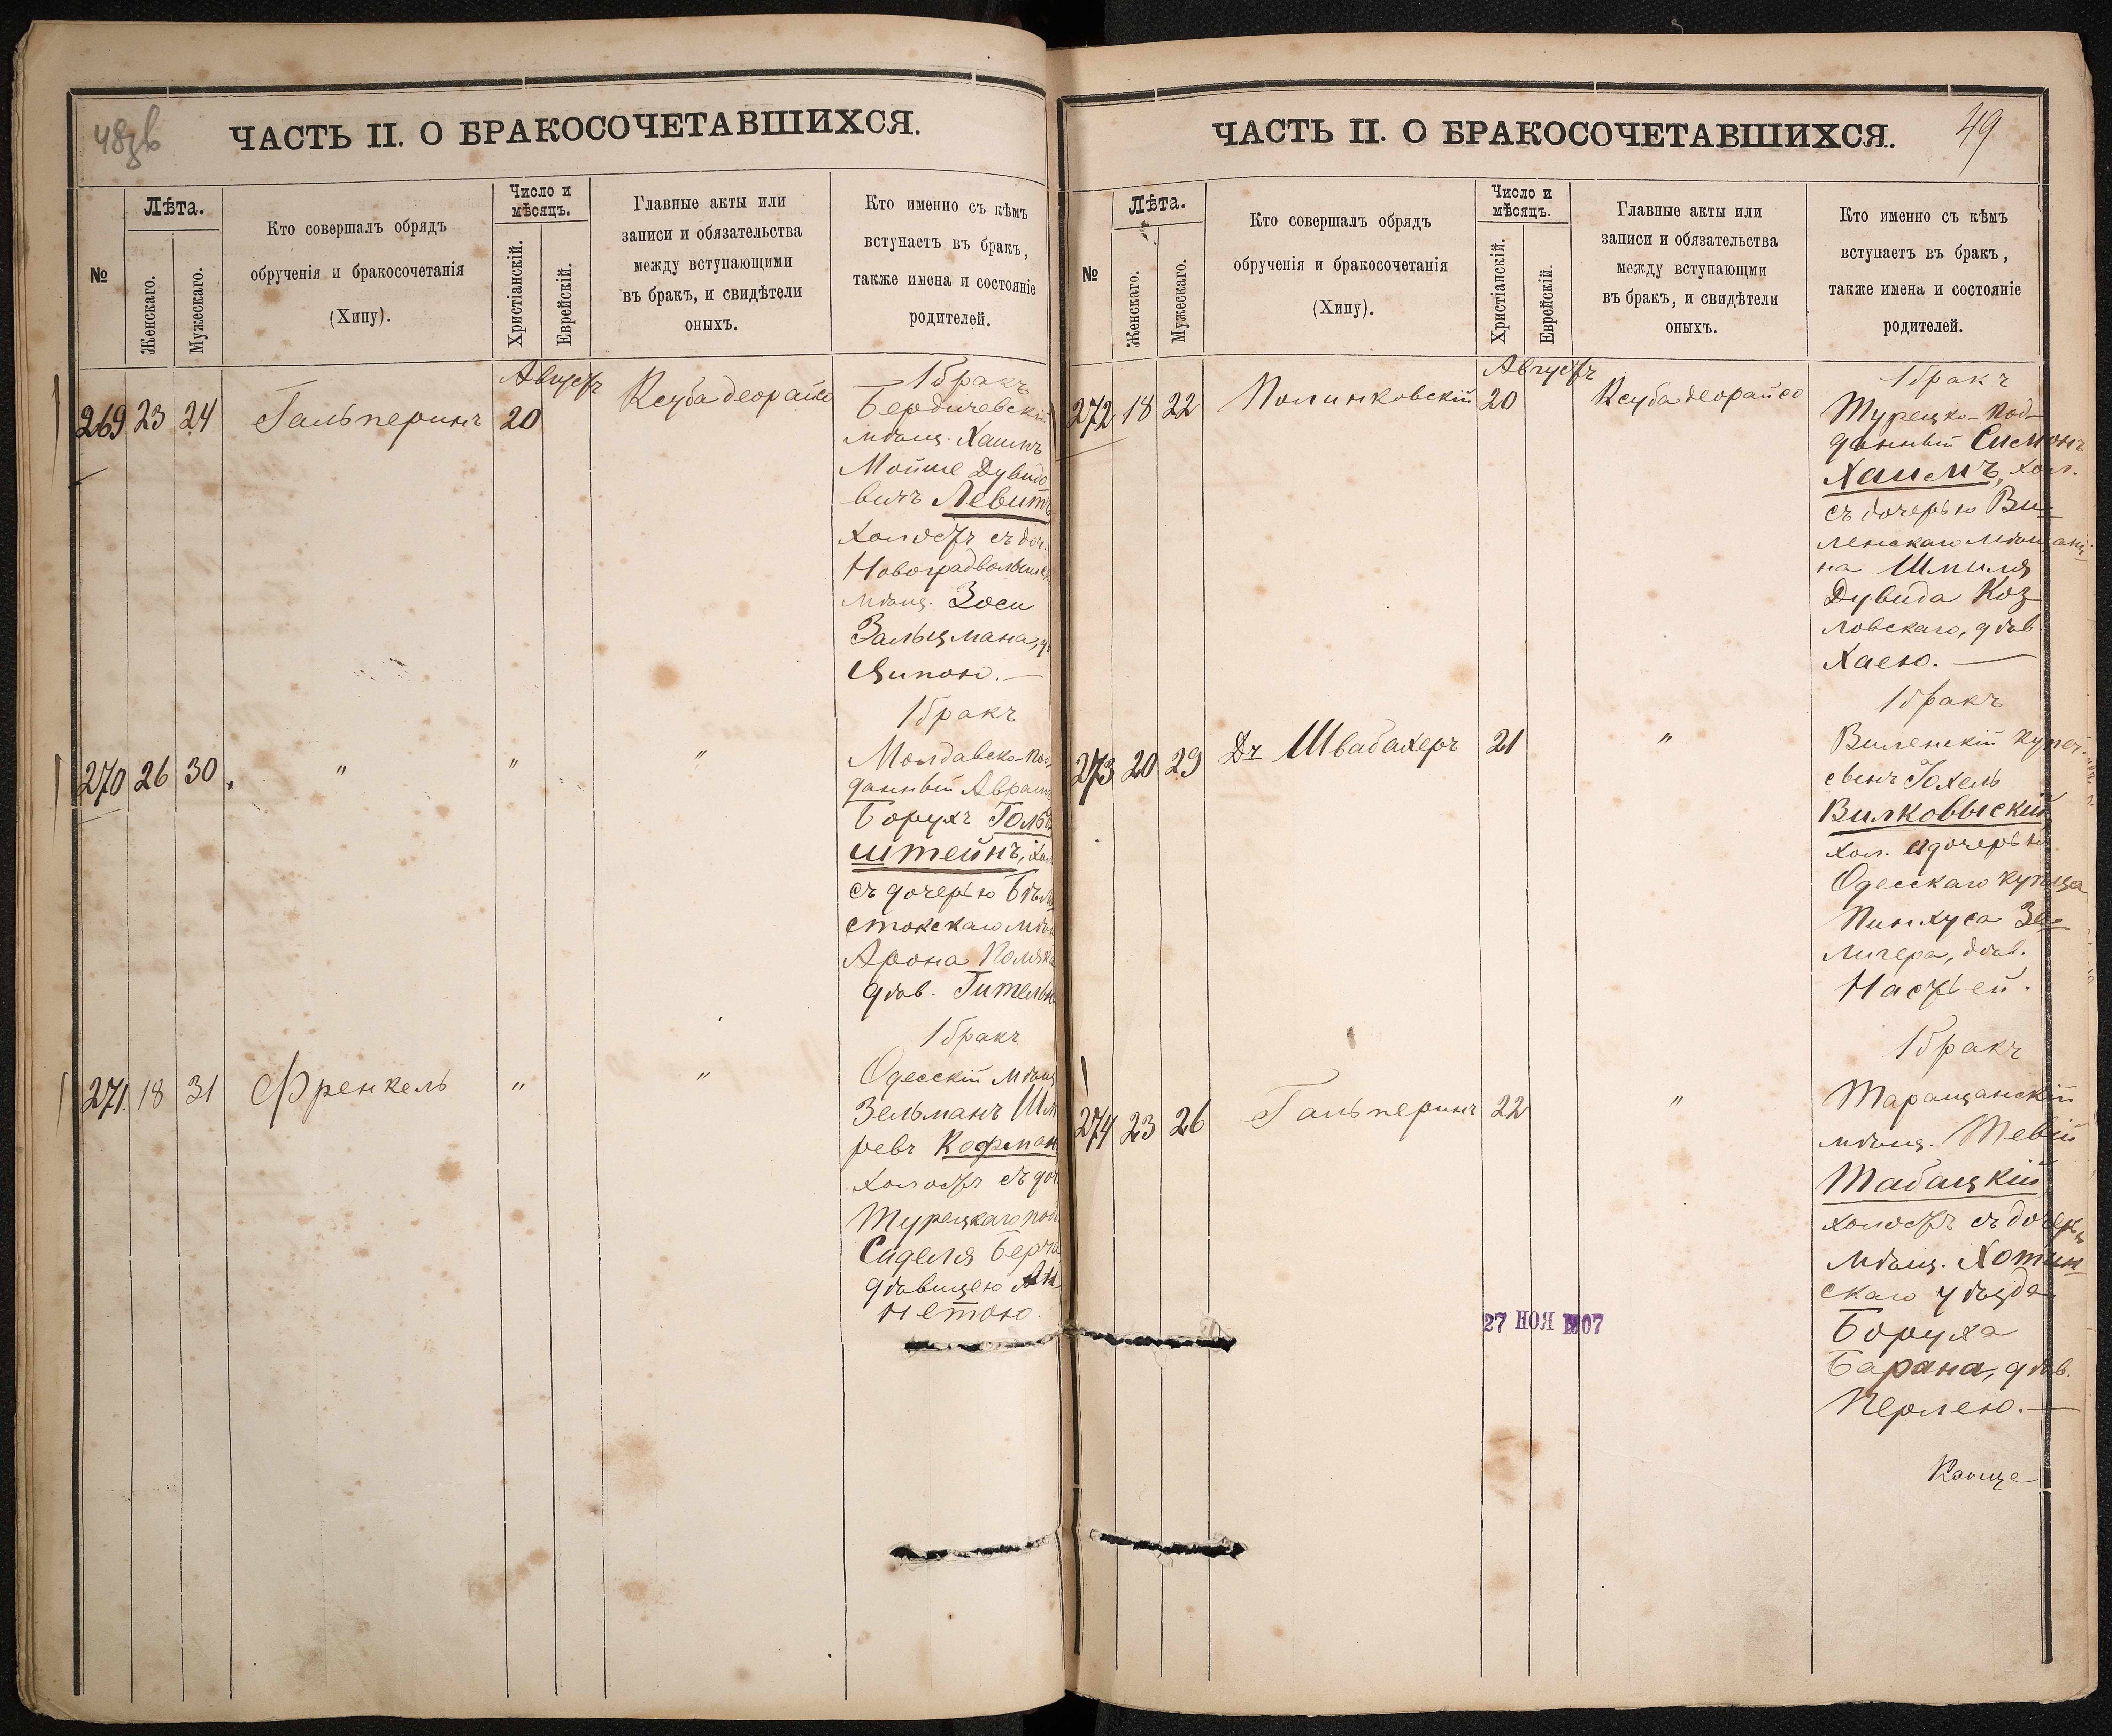 48об
ЧАСТЬ II. О БРАКОСОЧЕТАВШИХСЯ.
№
Лѣта.
Женскаго.
Мужескаго.
Кто совершалъ обрядъ
обрученія и бракосочетанія
(Хипу).
Число и
мѣсяцъ.
Христіанскій.
Еврейскій.
Главные акты или
записи и обязательства
между вступающими
въ бракъ, и свидѣтели
оныхъ.
Кто именно съ кѣмъ
вступаетъ въ бракъ,
также имена и состояніе
родителей.
Августъ
269 23 24 Гальперинъ 20 Ксуба деорайсо
1 бракъ
Бердичевскій
мѣщ. Хаимъ
Мойше Дувидо
вичъ Левитъ
холостъ съ доч.
Новоградволынск
мѣщ. Зоси
Зальцмана, д
Ципою.—
270 26 30 " " "
1 бракъ
Молдавско-под
данный Аврамъ
Борухъ Голь
штейнъ, хол
съ дочерью Бѣло
стокскаго мѣщ
Арона Поляка
дѣв. Гителью
271. 18 31 Френкель " "
1 бракъ
Одесскій мѣщ
Зельманъ Шм
ревъ Кофман
холостъ съ доч
Турецкаго под
Сиделя Берча
дѣвицею Ан
нетою.
49
ЧАСТЬ II. О БРАКОСОЧЕТАВШИХСЯ.
№
Лѣта.
Женскаго.
Мужескаго.
Кто совершалъ обрядъ
обрученія и бракосочетанія
(Хипу).
Число и
мѣсяцъ.
Христіанскій.
Еврейскій.
Главные акты или
записи и обязательства
между вступающми
въ бракъ, и свидѣтели
оныхъ.
Кто именно съ кѣмъ
вступаетъ въ бракъ,
также имена и состояніе
родителей.
Августъ
272 18 22 Полинковскій 20 Ксуба деорайсо
1 бракъ
Турецко-под-
данный Симонъ
Хаимъ, хол.
съ дочерью Ви-
ленскаго мѣщани-
на Шмиля
Дувида Коз-
ловскаго, дѣв.
Хаею.—
273 20 29 Др Швабахеръ 21 "
1 бракъ
Виленскій купеч.
сынъ Іохель
Вилковыскій,
хол. съ дочерью
Одесскаго купца
Пинхуса Зе-
лигера, дѣв.
Настьей.
274 23 26 Гальперинъ 22 "
1 бракъ
Таращанскій
мѣщ. Тевій
Табацкій,
холостъ съ дочерью
мѣщ. Хотин-
скаго уѣзда
Боруха
Барана, дѣв.
Перлею.—
27 НОЯ 1907